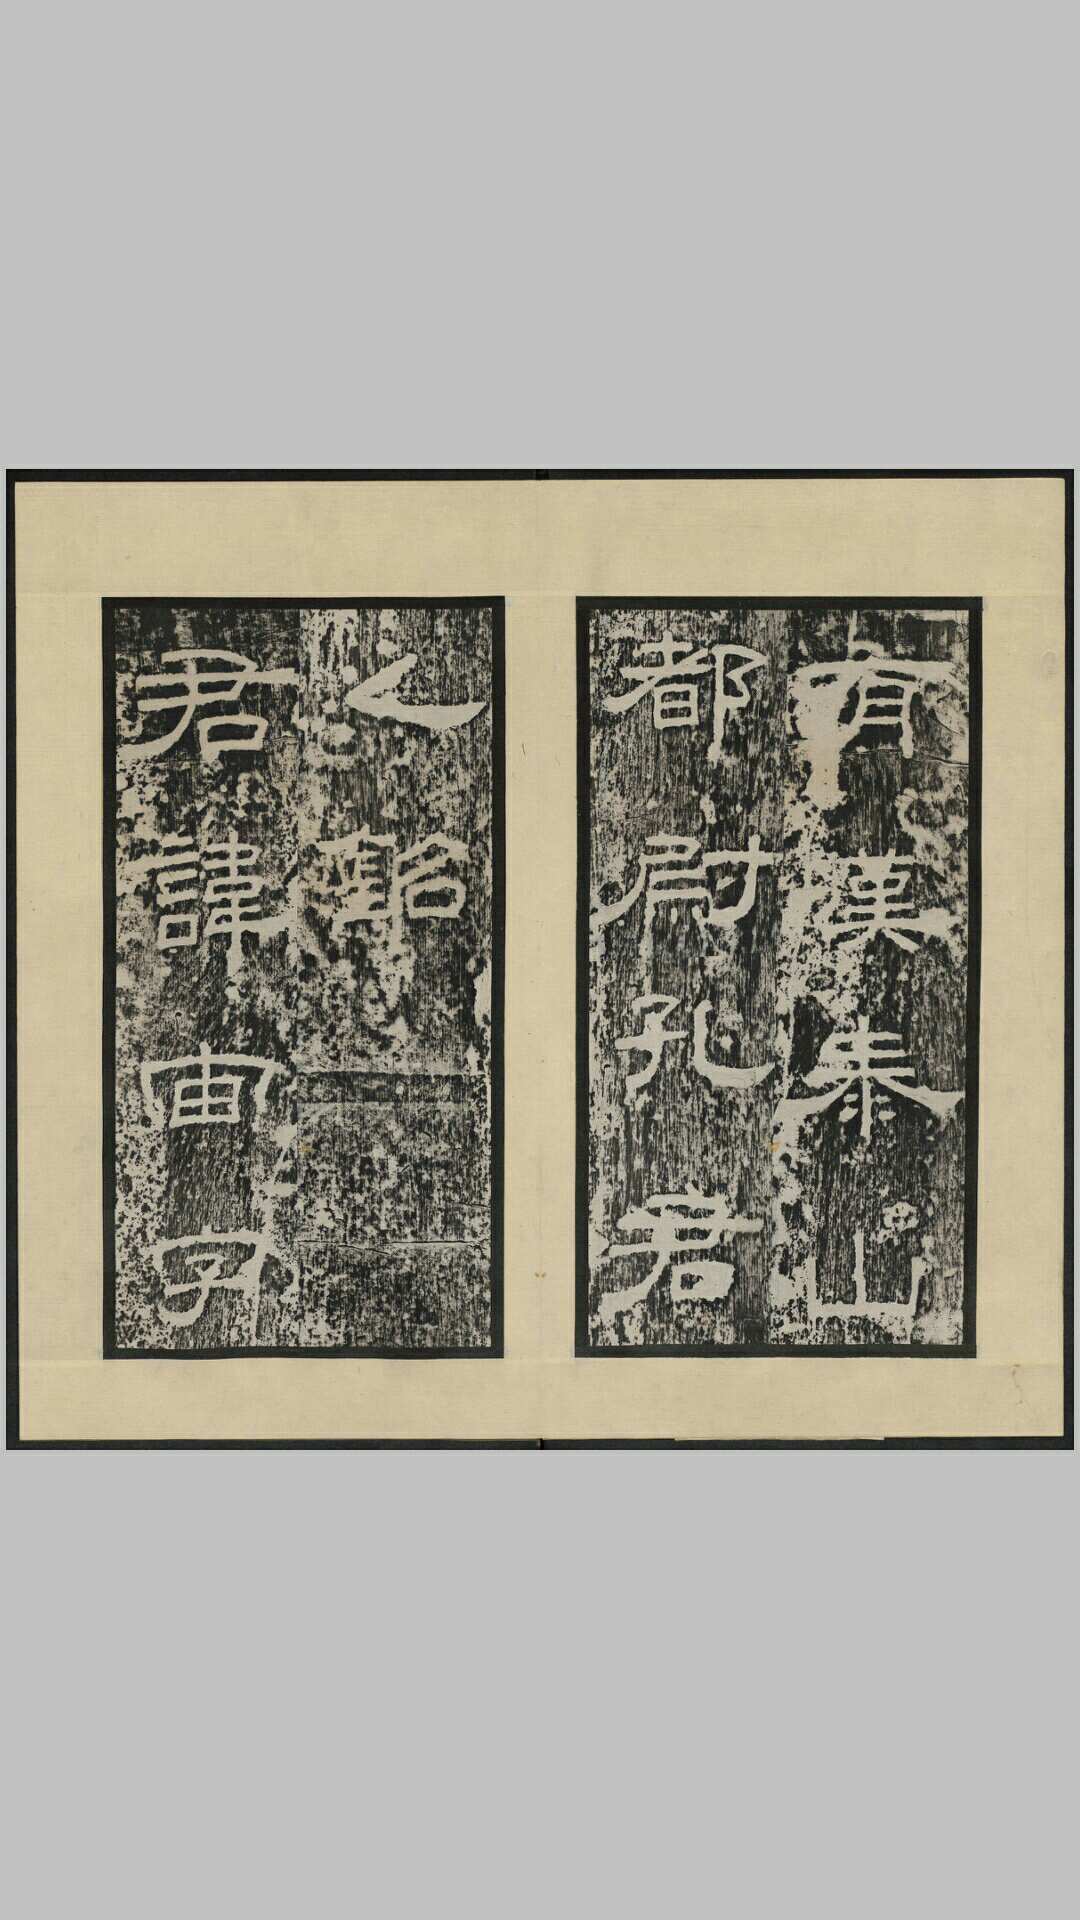 有漢泰山
都尉孔君
之銘
君諱宙字